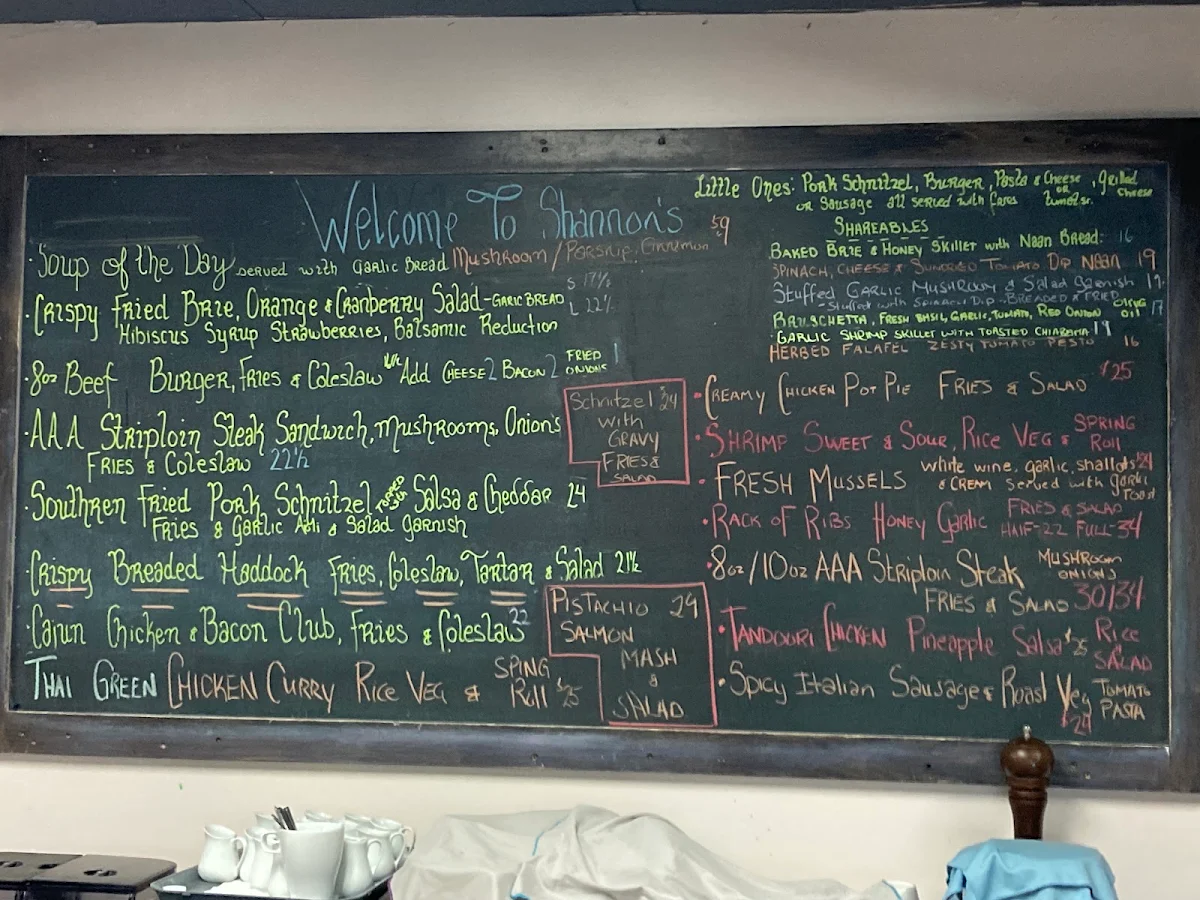 Welcome To Shannon's
Soup of the Day served with Garlic Bread Mushroom / Parsnip, Cinnamon $9
Crispy Fried Brie, Orange & Cranberry Salad - Garic Bread S 17½ L 22½
Hibiscus Syrup Strawberries, Balsamic Reduction
8oz Beef Burger, Fries & Coleslaw Add Cheese 2 Bacon 2 Fried Onions 1
AAA Striploin Steak Sandwich, Mushrooms, Onion's
Fries & Coleslaw 22½
Southren Fried Pork Schnitzel Salsa & Cheddar 24
Fries & Garlic Aoli & Salad Garnish
Crispy Breaded Haddock Fries, Coleslaw, Tartar & Salad 21½
Cajun Chicken & Bacon Club, Fries & Coleslaw 22
Thai Green Chicken Curry Rice Veg & Sping Roll $25
Schnitzel $24
with
Gravy
Fries &
Salad
Pistachio 24
Salmon
Mash
&
Salad
Little Ones: Pork Schnitzel, Burger, Pasta & Cheese, Grilled Cheese
or Sausage all served with fries or
Shareables
Baked Brie & Honey Skillet with Naan Bread: 16
Spinach, Cheese & Sundried Tomato Dip Naan 19
Stuffed Garlic Mushroom & Salad Garnish
- Stuffed with Spinach Dip - Breaded & Fried
Bruschetta, Fresh Basil, Garlic, Tomato, Red Onion Olive Oil 17
Garlic Shrimp Skillet with Toasted Chiabatta 19
Herbed Falafel Zesty Tomato Pesto 16
Creamy Chicken Pot Pie Fries & Salad $25
Shrimp Sweet & Sour, Rice Veg & Spring Roll
Fresh Mussels white wine, garlic, shallots $24
& cream served with garlic Toast
Rack of Ribs Honey Garlic Fries & Salad
Half-22 Full-34
8oz/10oz AAA Striploin Steak Mushroom Onions
Fries & Salad 30/34
Tandouri Chicken Pineapple Salsa $25 Rice Salad
Spicy Italian Sausage & Roast Veg Tomato Pasta $24